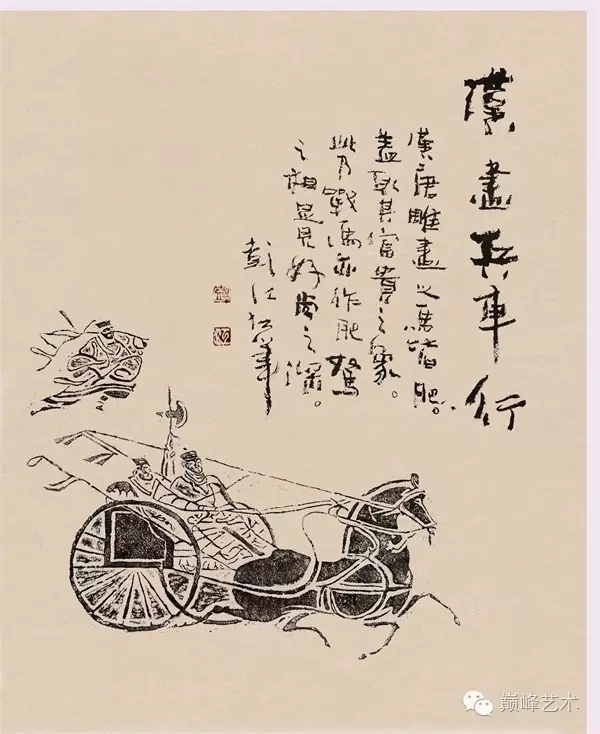 漢畫兵車行
漢唐雕畫之馬皆肥。
蓋取其富貴之象。
戰馬亦作肥駑
之相足見好尚之
巅峰艺术